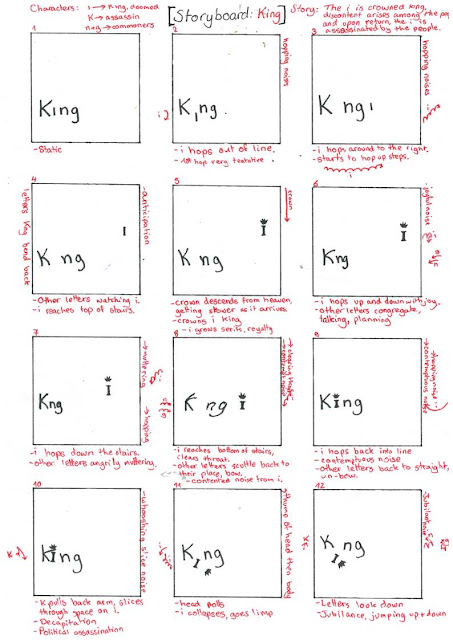 Characters: i → King, doomed
K → assassin
n+g → commoners
[Storyboard: King]
Story: The i is crowned king,
discontent arises among the peo
and upon return, the i is
assassinated by the people.
1
Kıng
-Static
2
hopping noises
i
K ı ng
-i hops out of line.
-1st hop very tentative.
3
hopping noises
K ng ı
-i hops around to the right.
-starts to hop up steps.
i
4
letters K+ng bend back
-anticipation
K ng ı
-Other letters watching i.
-i reaches top of stairs.
5
crown
K ng I
-crown descends from heaven,
getting slower as it arrives
-crowns i king
-i grows serifs, royalty
6
Kng I
-i hops up and down with joy.
-other letters congregate,
talking, planning
7
-muttering
-hopping
Kng I
-i hops down the stairs.
-other letters angrily muttering.
8
K ng I
-i reaches bottom of stairs,
clears throat.
-other letters scuttle back to
their place, bow.
-contented noise from i.
9
KIng
-i hops back into line
-contemptuous noise
-other letters back to straight,
un-bow.
10
K
-whooshing slice noise
KIng
-K pulls back arm, slices
through space on i.
-Decapitation
-Political assassination
11
thump of head then body
K I ng
-head rolls
-i collapses, goes limp
12
Jubilant noise
K I ng
-Letters look down
-Jubilance, jumping up + down